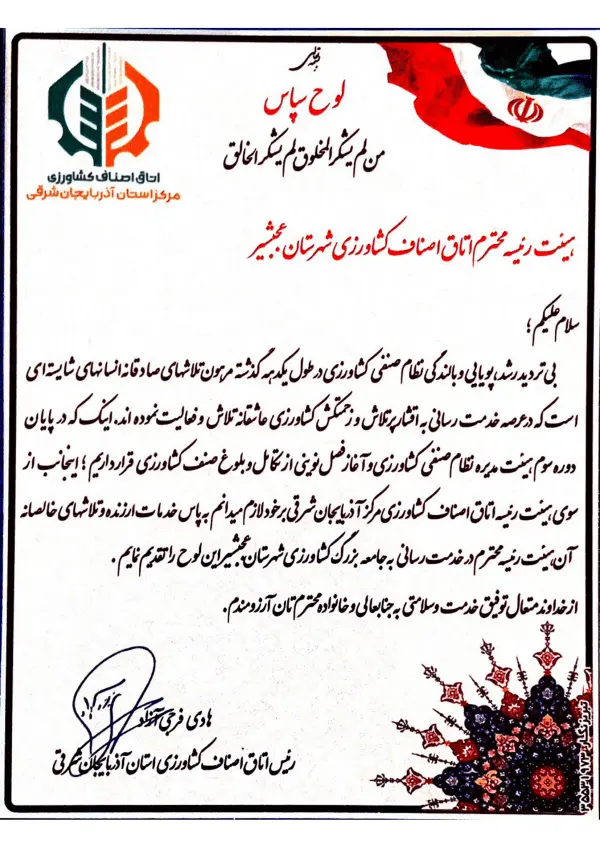 بسمه تعالی
لوح سپاس
من لم یشکر المخلوق لم یشکر الخالق
اتاق اصناف کشاورزی
مرکز استان آذربایجان شرقی
هیئت رئیسه محترم اتاق اصناف کشاورزی شهرستان عجبشیر
سلام علیکم ؛
بی تردید رشد، پویایی و بالندگی نظام صنفی کشاورزی در طول یکدهه گذشته مرهون تلاشهای صادقانه انسانهای شایسته ای
است که در عرصه خدمت رسانی به اقشار پرتلاش و زحمتکش کشاورزی عاشقانه تلاش و فعالیت نموده اند. اینک که در پایان
دوره سوم هیئت مدیره نظام صنفی کشاورزی و آغاز فصل نوینی از تکامل و بلوغ صنف کشاورزی قرار داریم ؛ اینجانب از
سوی هیئت رئیسه اتاق اصناف کشاورزی مرکز آذربایجان شرقی بر خود لازم میدانم به پاس خدمات ارزنده و تلاشهای خالصانه
آن هیئت رئیسه محترم در خدمت رسانی به جامعه بزرگ کشاورزی شهرستان عجبشیر این لوح را تقدیم نمایم .
از خداوند متعال توفیق خدمت و سلامتی به جنابعالی و خانواده محترم تان آرزومندم.
هادی فرجی آزاد
رئیس اتاق اصناف کشاورزی استان آذربایجان شرقی